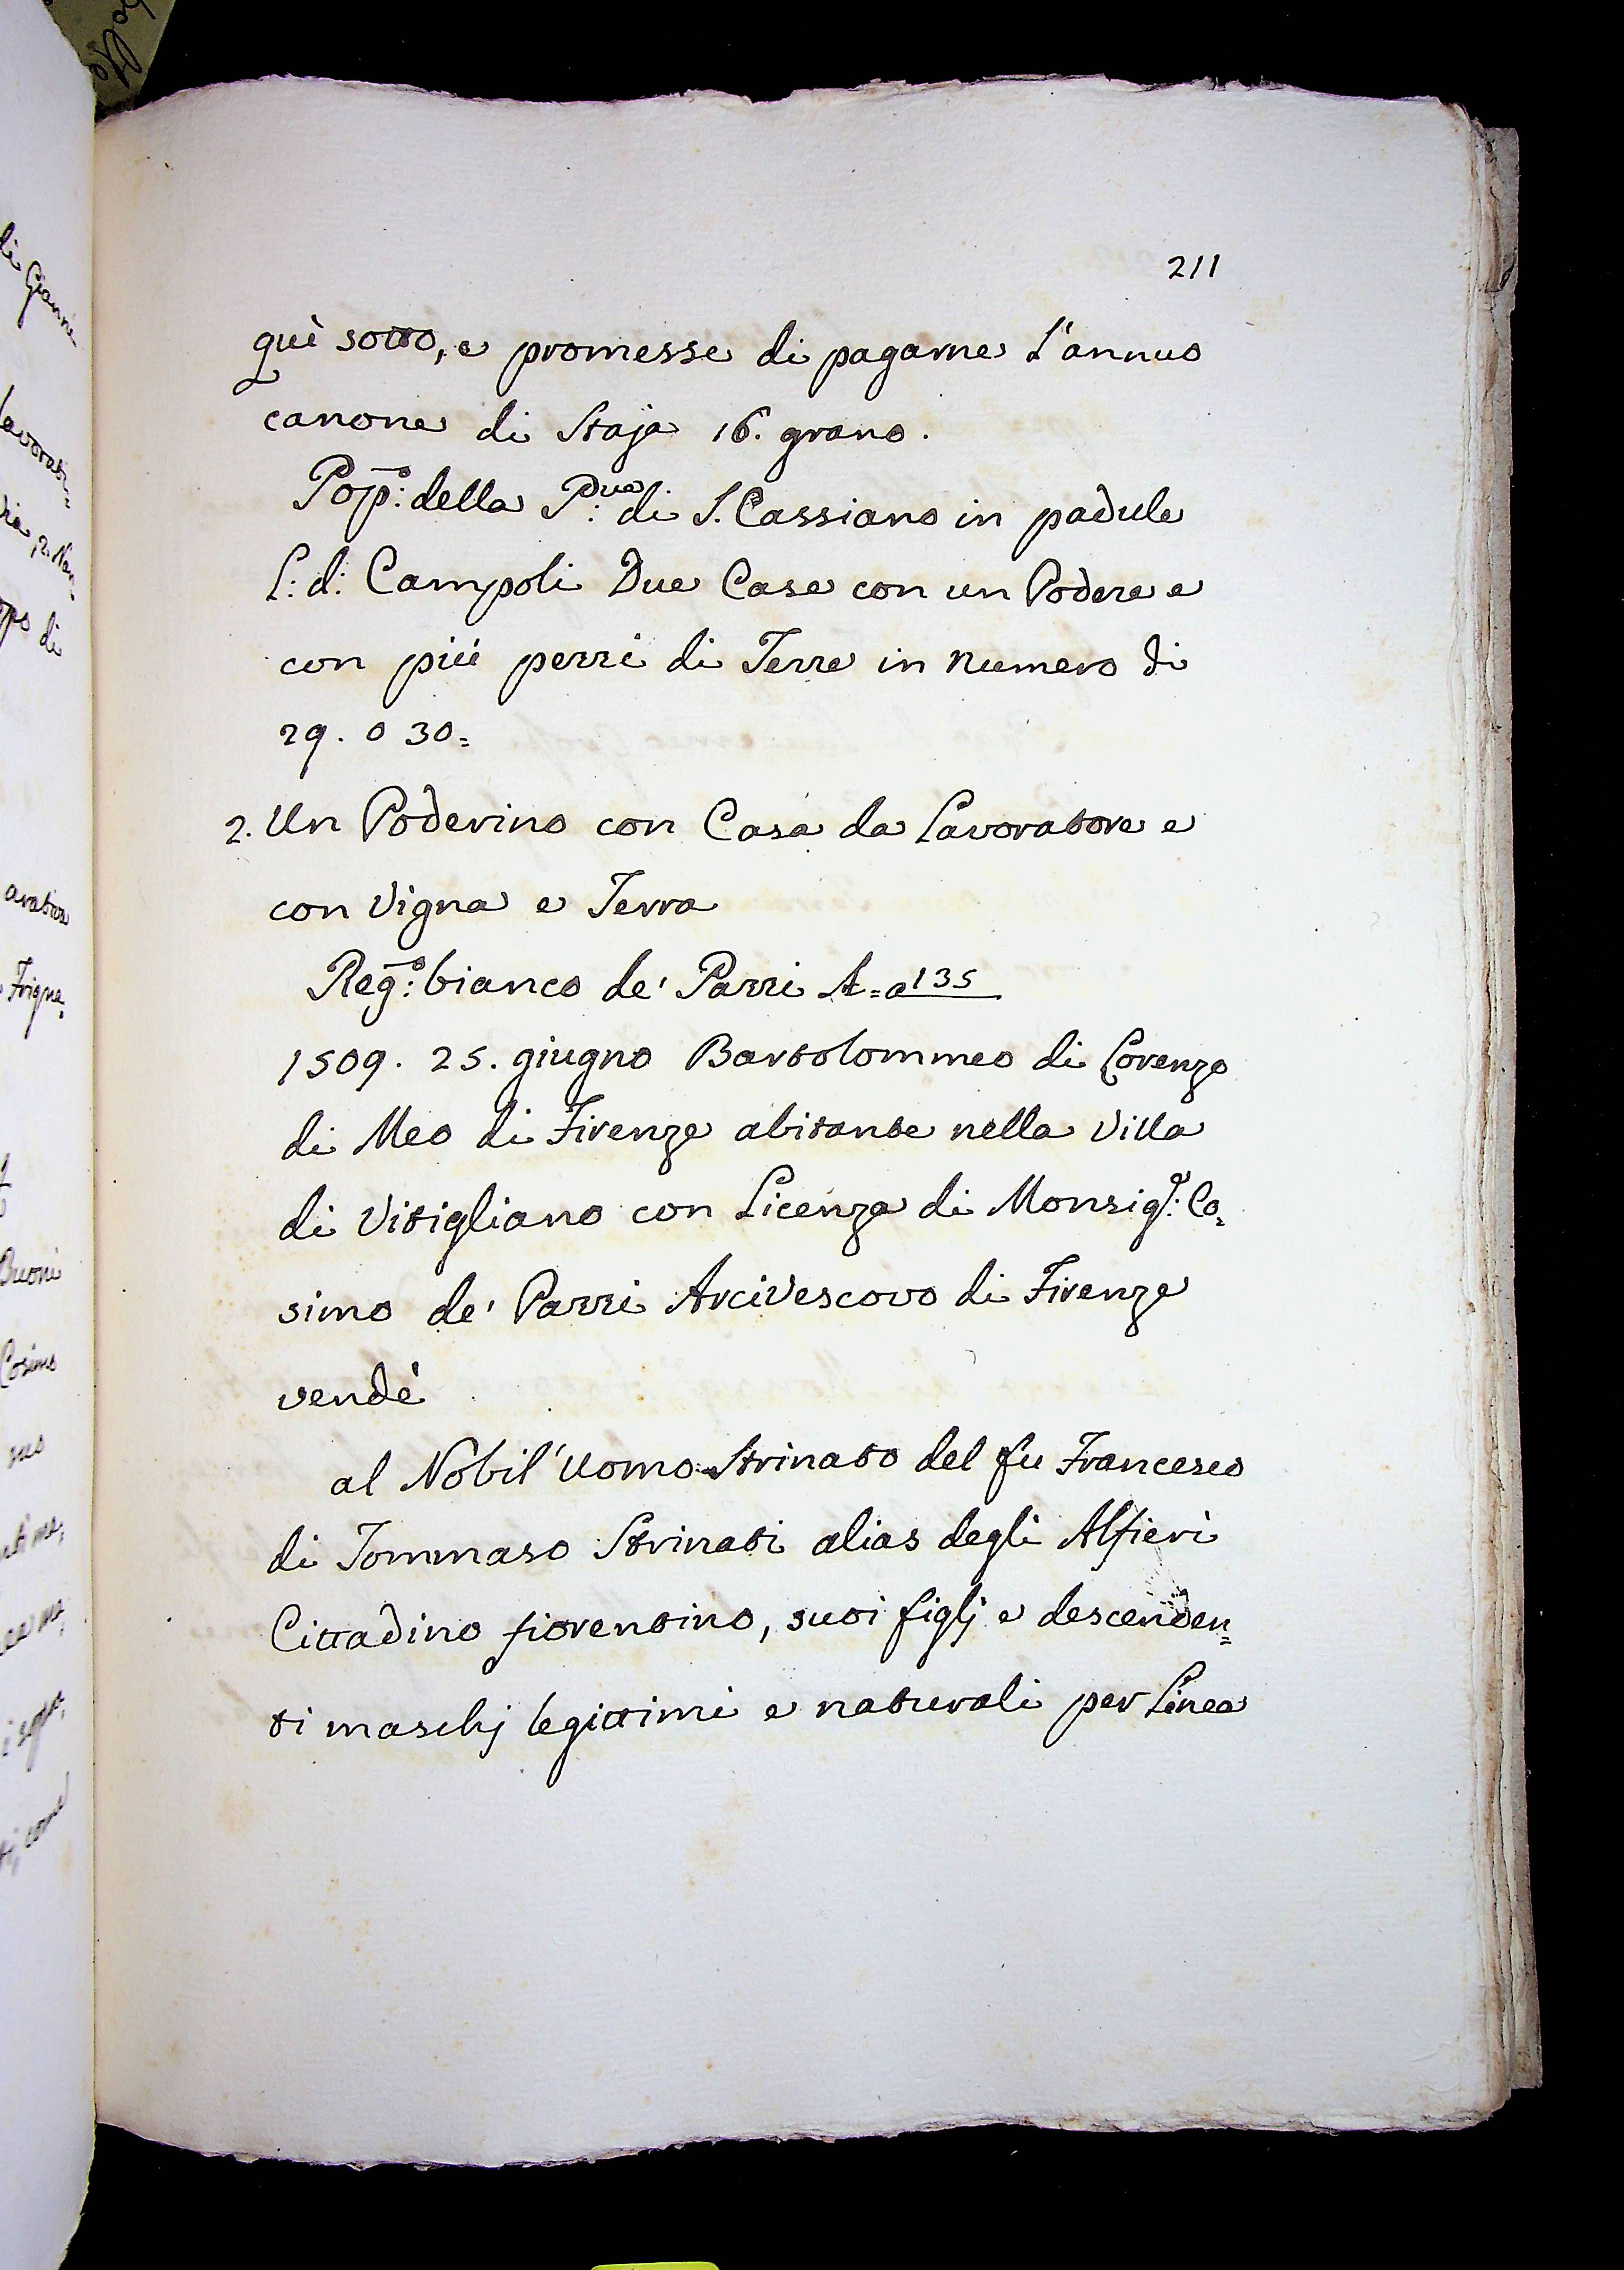 211
quì sotto, e promesse di pagarne L'annuo
canone di Staja 16. grano.
Pop:o della P:ve di S. Cassiano in padule
L: d: Campoli Due Case con un Podere e
con più pezzi di Terre in numero di
29. o 30=
2. Un Poderino con Casa da Lavoratore e
con Vigna e Terra
Reg:o bianco de' Pazzi A=a 135
1509. 25. giugno Bartolommeo di Lorenzo
di Meo di Firenze abitante nella Villa
di Vitigliano con Licenza di Monsig:e Co=
simo de' Pazzi Arcivescovo di Firenze
vendè
al Nobil' Uomo Strinato del fu Francesco
di Tommaso Strinati alias degli Alfieri
Cittadino fiorentino, suoi figlj e descenden=
ti maschj legittimi e naturali per Linea